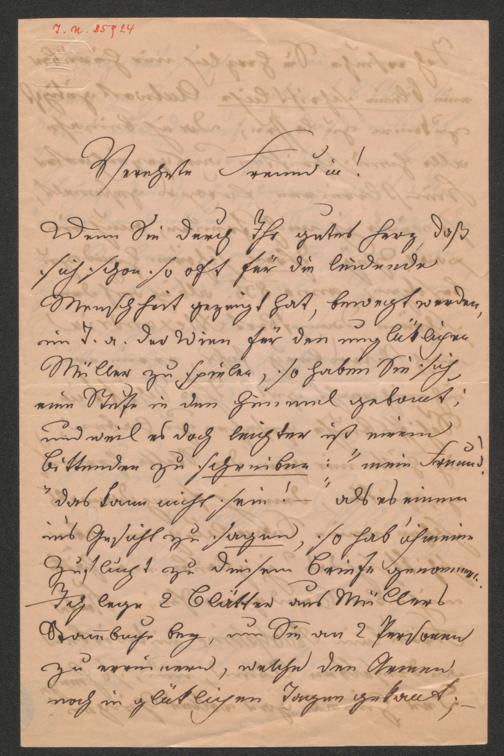 I. N. 25924
Verehrte Freundin!
Wenn Sie durch Ihr gutes Herz, daß
sich schon so oft für die leidende
Menschheit gezeigt hat, bewegt werden,
im T. a. der Wien für den unglüklichen
Müller zu spielen, so haben Sie sich
eine Stufe in den Himmel gebaut;
und weil es doch leichter ist einem
bittenden zu schreiben: "mein Freund!
"das kann nicht sein! –" als es einem
ins Gesicht zu sagen, so hab ich meine
Zuflucht zu diesem Briefe genommen.
Ich lege 2 Blätter aus Müllers
Stammbuche bey, um Sie an 2 Personen
zu erinnern, welche den Armen
noch in glüklichen Tagen gekant; –